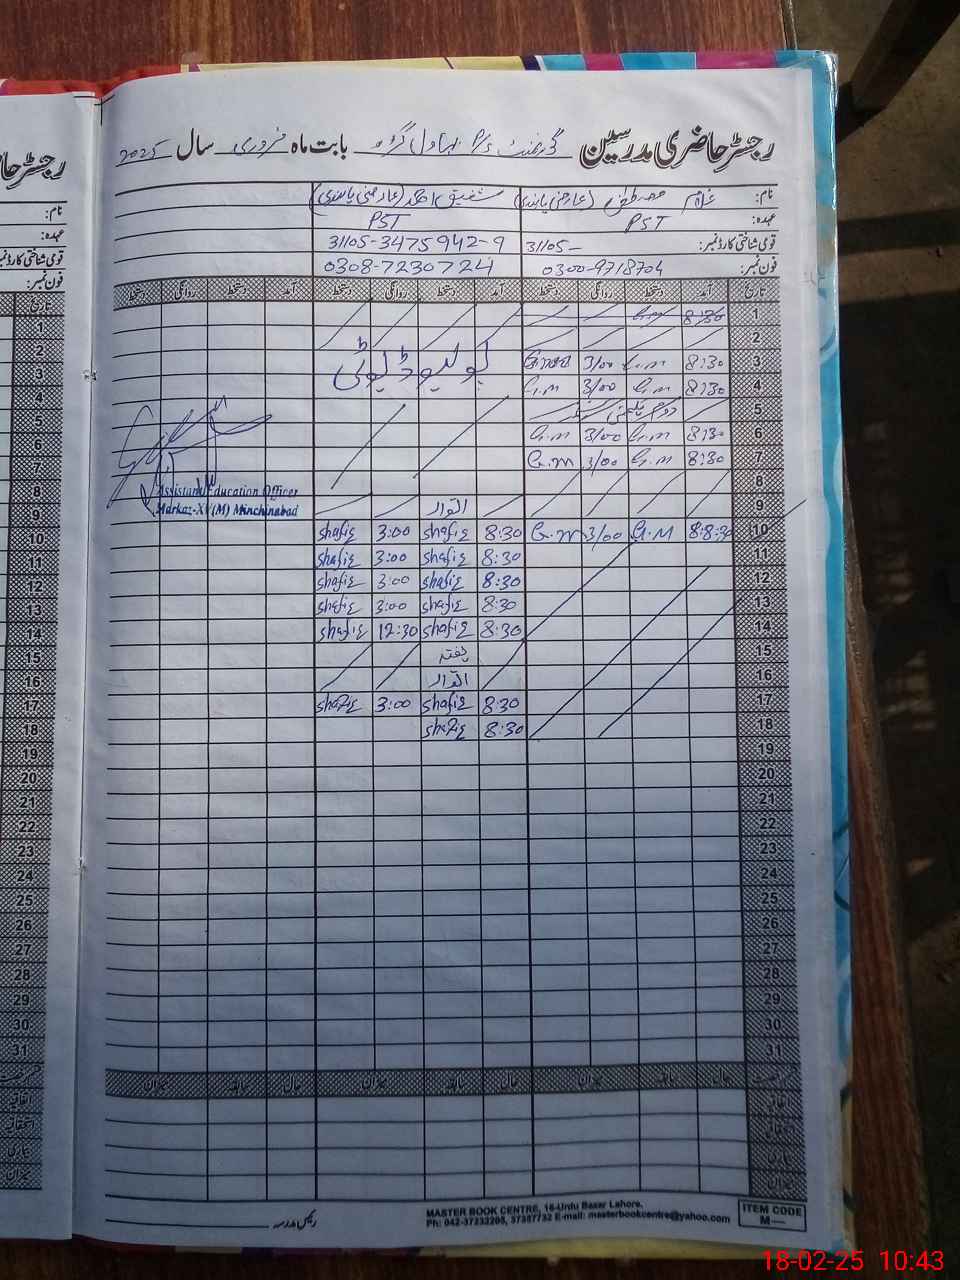 رجسٹر حاضری مدرسین گورنمنٹ بابت ماہ فروری سال 2025
نام: غلام مصطفیٰ (عارضی پابندی) شفیق احمد (عارضی پابندی)
عہدہ: PST PST
قومی شناختی کارڈ نمبر: 31105- 31105-3475942-9
فون نمبر: 0300-9718704 0308-7230724
تاریخ آمد دستخط روانگی دستخط آمد دستخط روانگی دستخط آمد دستخط روانگی دستخط
1 8:30 G.m
2
3 8:30 G.m 3/00 پولیو ڈیوٹی
4 8:30 G.m 3/00 G.m
5
6 8:30 G.m 3/00 G.m
7 8:30 G.m 3/00 G.m
8
Assistant Education Officer
9 اتوار
Markaz-XV(M) Minchinabad
10 8:8:30 G.M 3/00 G.m 8:30 shafiq 3:00 shafiq
11 8:30 shafiq 3:00 shafiq
12 8:30 shafiq 3:00 shafiq
13 8:30 shafiq 3:00 shafiq
14 8:30 shafiq 12:30 shafiq
15 ہفتہ
16 اتوار
17 8:30 shafiq 3:00 shafiq
18 8:30 shafiq
19
20
21
22
23
24
25
26
27
28
29
30
31
حال سابقہ میزان حال سابقہ میزان حال سابقہ میزان
اتفاقیہ
استحقاقیہ
بیماری
میزان
رئیس مدرسہ
MASTER BOOK CENTRE, 16-Urdu Bazar Lahore.
Ph: 042-37232205, 37357732 E-mail: masterbookcentre@yahoo.com
ITEM CODE
M—
رجسٹر حا
نام:
عہدہ:
قومی شناختی کارڈ نمبر:
فون نمبر:
تاریخ
1
2
3
4
5
6
7
8
9
10
11
12
13
14
15
16
17
18
19
20
21
22
23
24
25
26
27
28
29
30
31
18-02-25 10:43